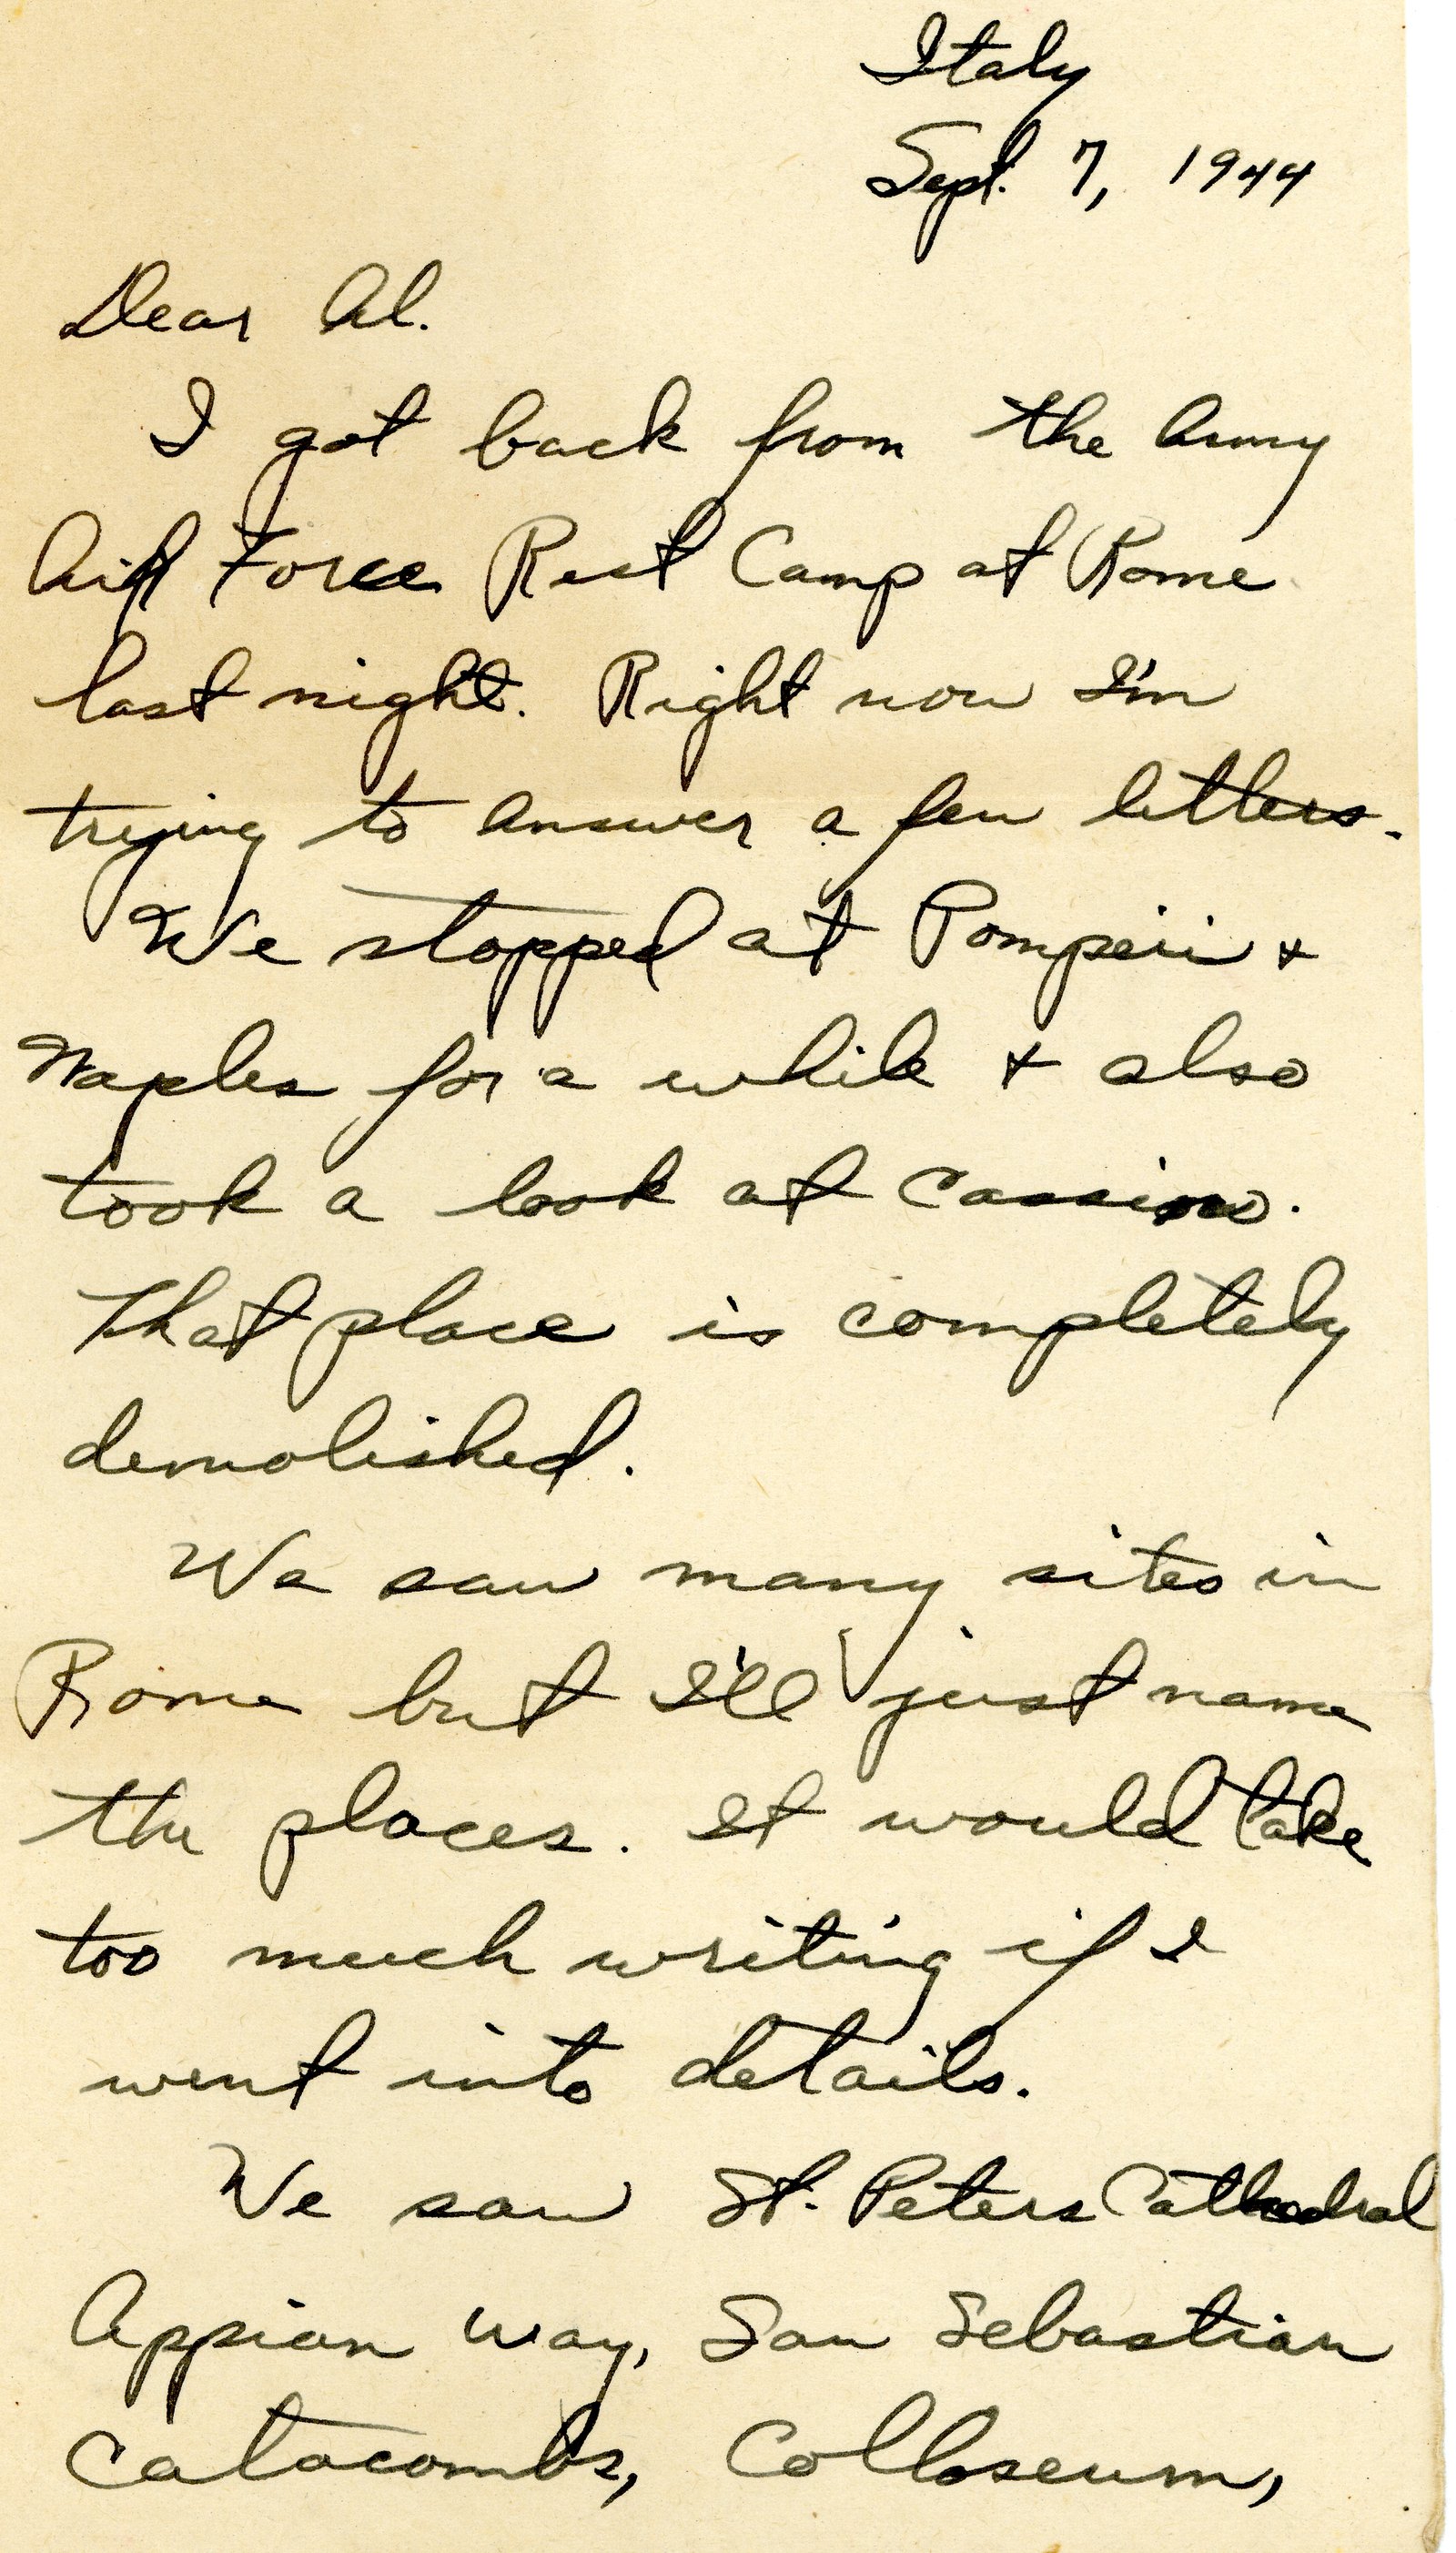 Italy
Sept. 7, 1944
Dear Al.
I got back from the Army
Air Force Rest Camp at Rome
last night. Right now I'm
trying to answer a few letters.
We stopped at Pompeii +
Naples for a while + also
took a look at Cassino.
That place is completely
demolished.
We saw many sites in
Rome but I'll just name
the places. It would take
too much writing if I
went into details.
We saw St. Peters Cathedral
Appian Way, San Sebastian
Catacombs, Colloseum,